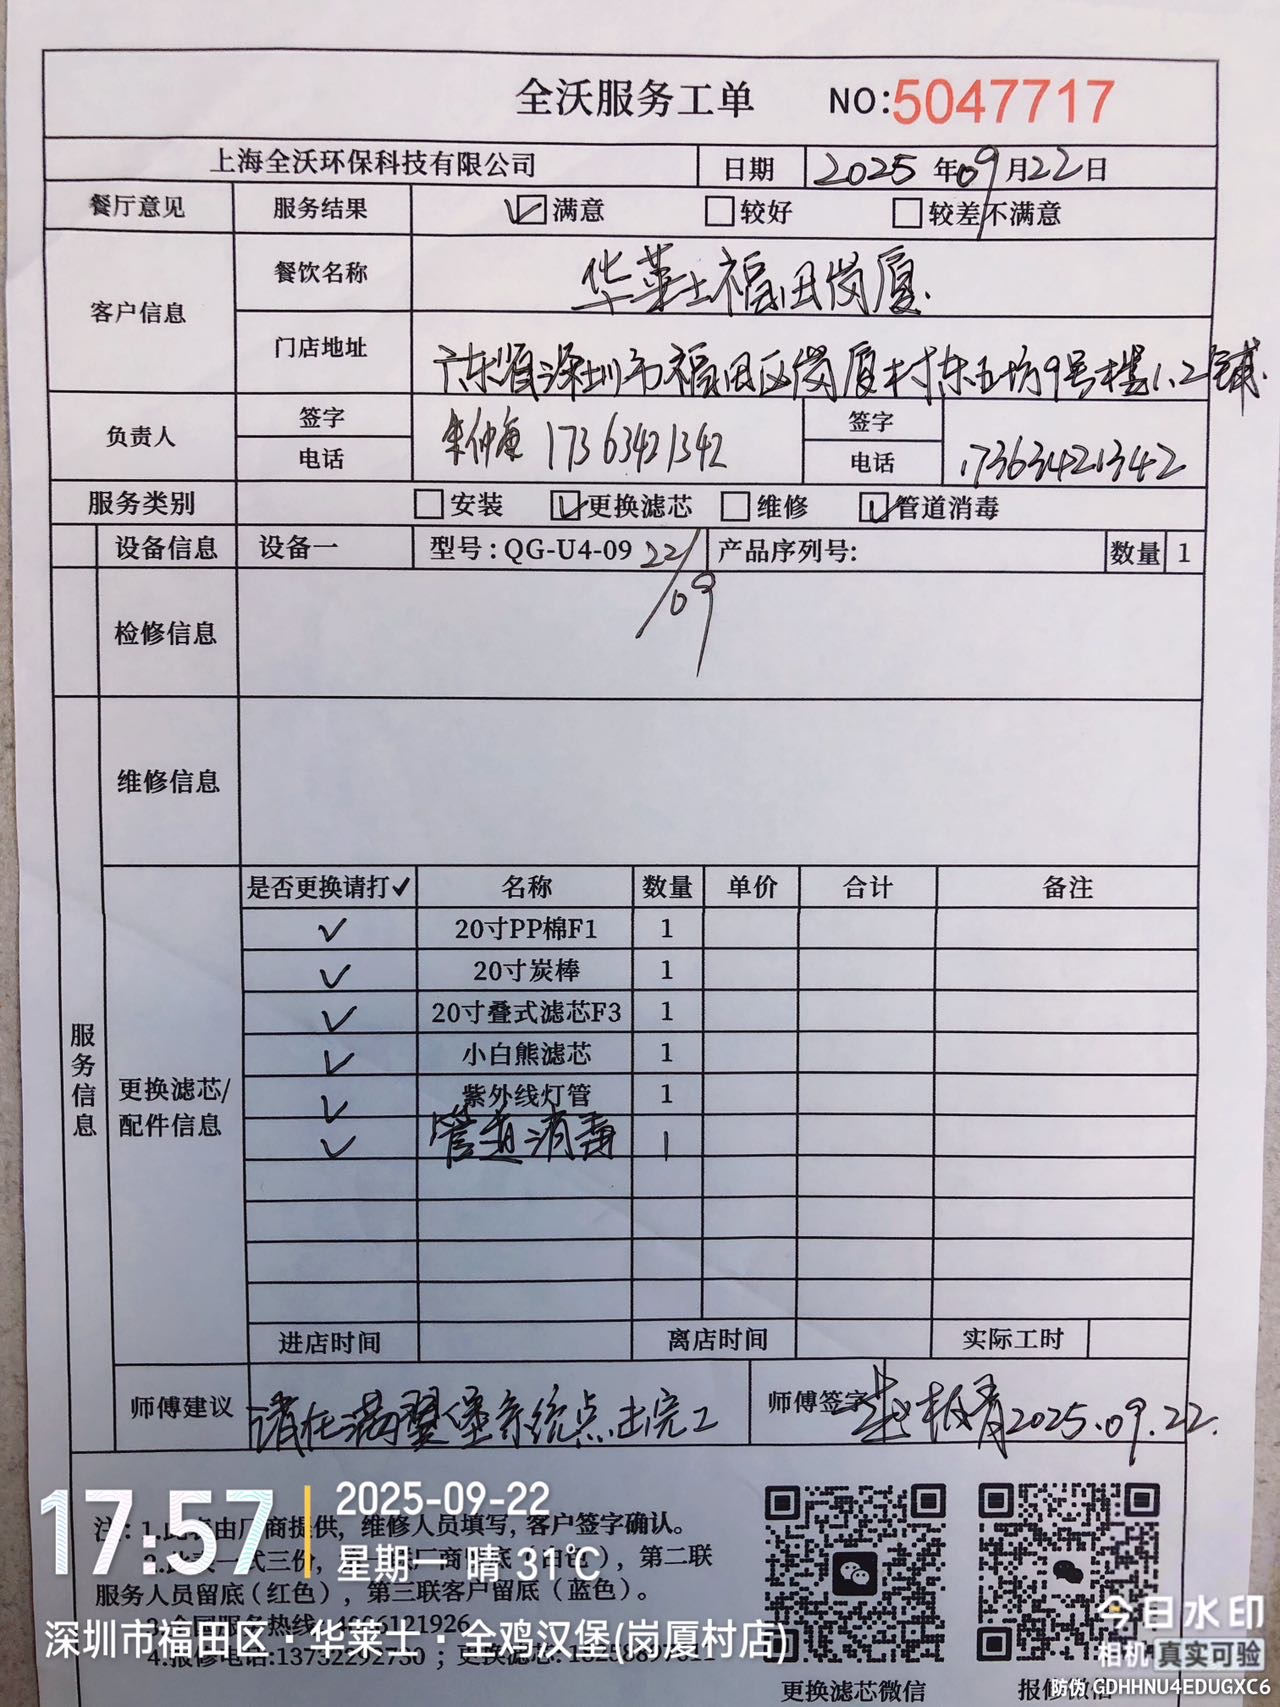 全沃服务工单 NO:5047717
上海全沃环保科技有限公司 日期 2025年09月22日
餐厅意见 服务结果 满意 较好 较差不满意
客户信息 餐饮名称 华莱士福田岗厦
门店地址 广东省深圳市福田区岗厦村东五坊9号楼1.2铺
负责人 签字 17363421342 签字
电话 电话 17363421342
服务类别 安装 更换滤芯 维修 管道消毒
设备信息 设备一 型号:QG-U4-09 22/09 产品序列号: 数量 1
检修信息
维修信息
服务信息
更换滤芯/配件信息
是否更换请打✓ 名称 数量 单价 合计 备注
✓ 20寸PP棉F1 1
✓ 20寸炭棒 1
✓ 20寸叠式滤芯F3 1
✓ 小白熊滤芯 1
✓ 紫外线灯管 1
✓ 管道消毒 1
进店时间 离店时间 实际工时
师傅建议 请在满翼堡系统点击完工 师傅签字 2025.09.22.
注:1.此表由厂商提供,维修人员填写,客户签字确认。
一式三份, 厂商 底(白色),第二联
服务人员留底(红色),第三联客户留底(蓝色)。
4.报修电话: 更换滤芯:
更换滤芯微信 报修微信
17:57
2025-09-22
星期一 晴 31℃
深圳市福田区·华莱士·全鸡汉堡(岗厦村店)
今日水印
相机 真实可验
防伪 GDHHNU4EDUGXC6